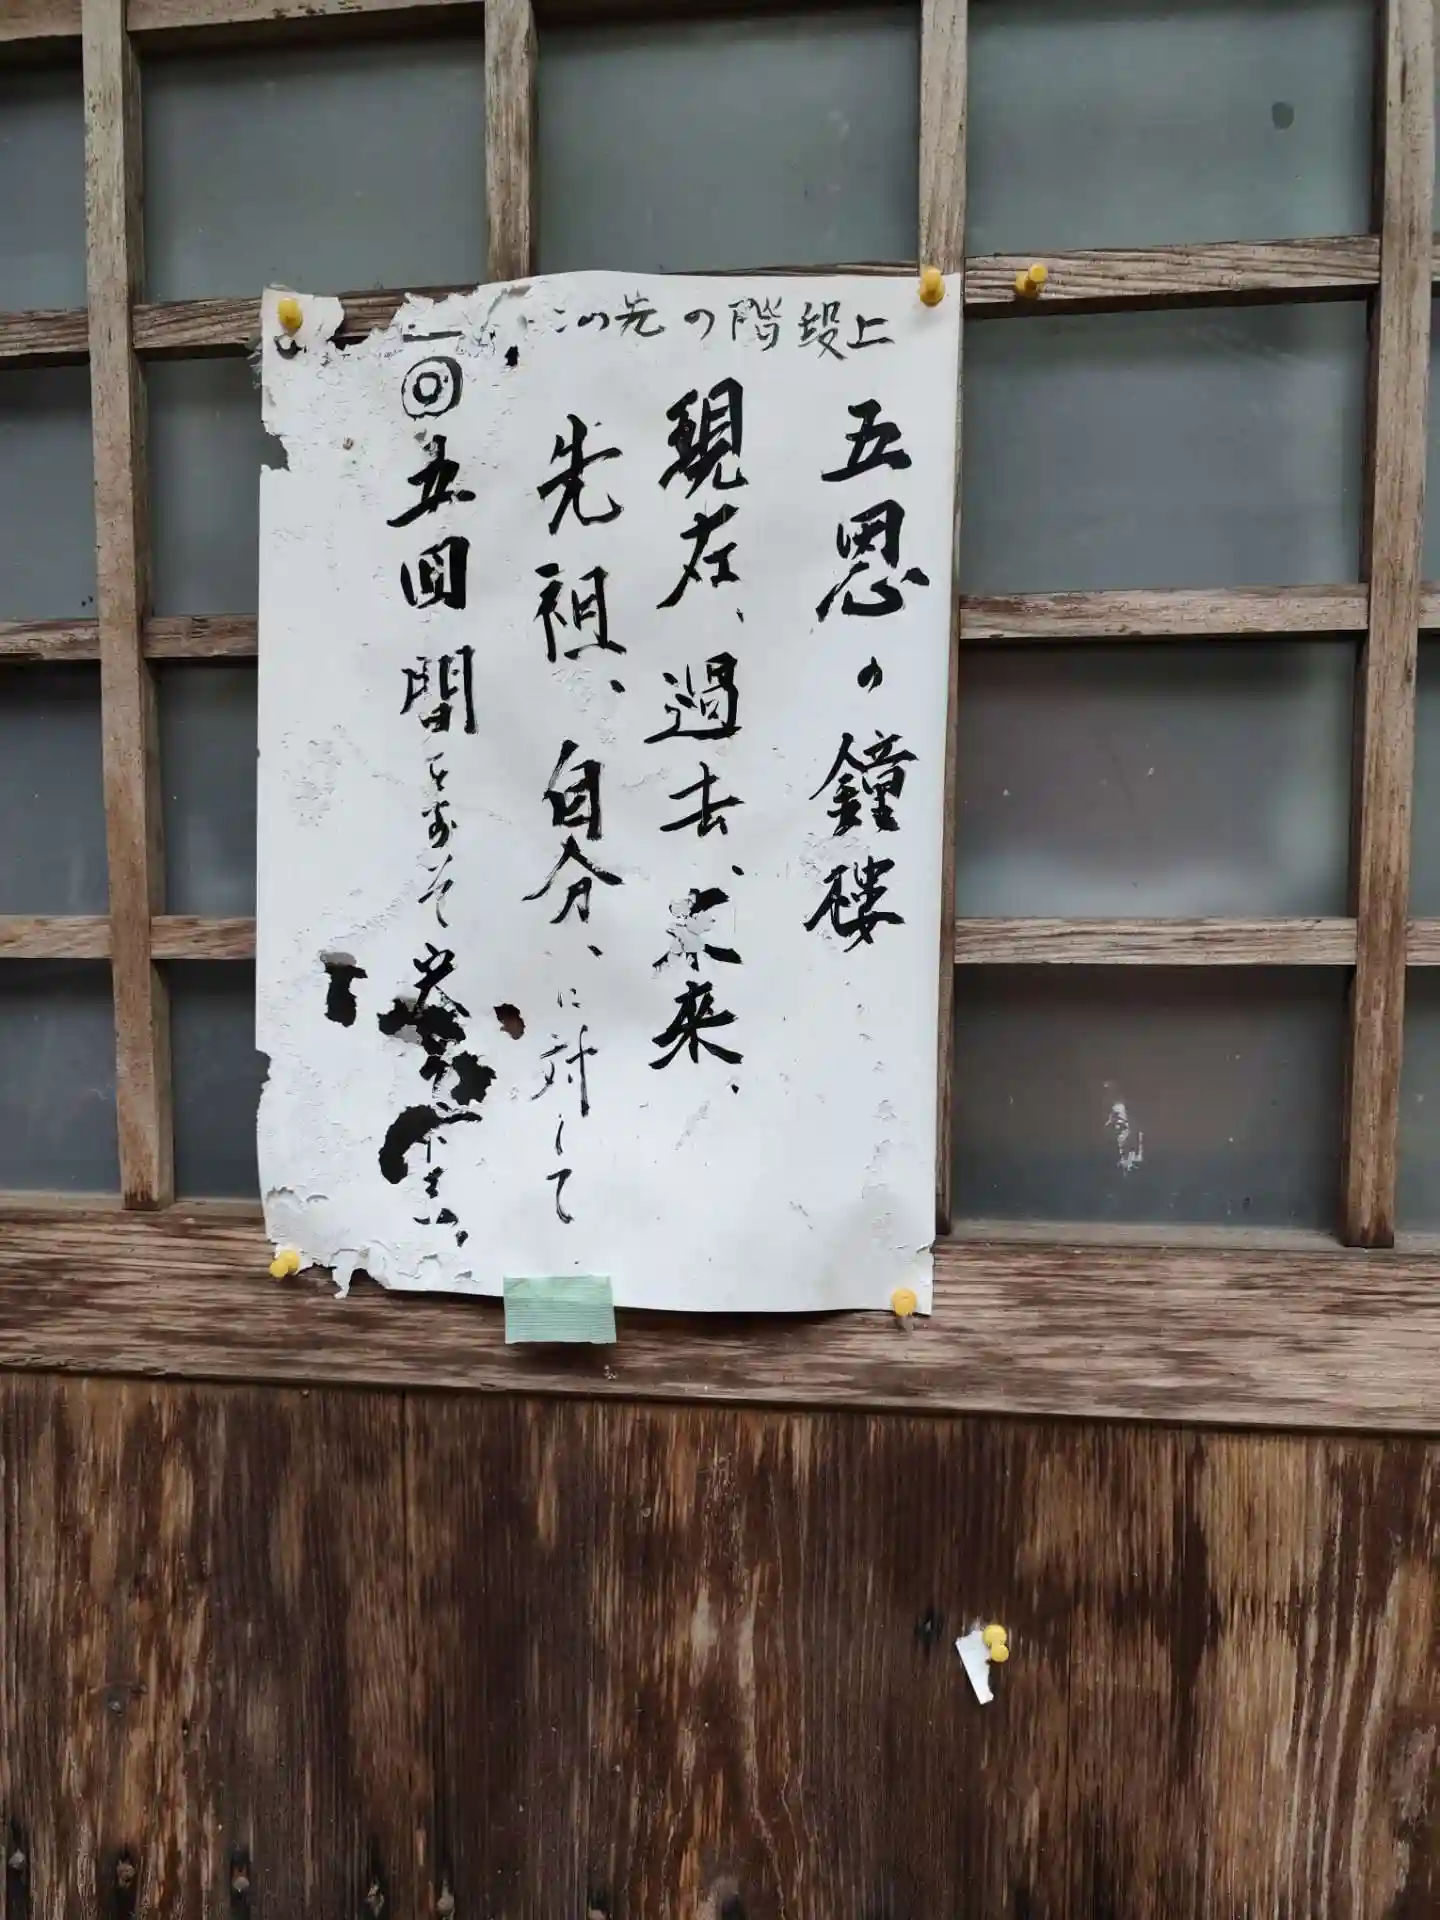 この先の階段上
五恩の鐘楼
現在、過去、未来、
先祖、自分、に対して
◎五回間をおいて
下さい。